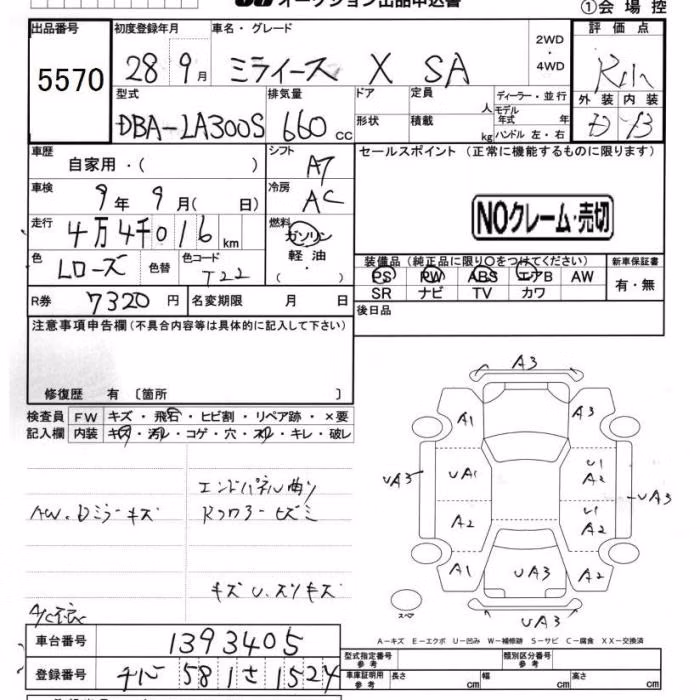 オークション出品申込書
①会場控
出品番号 初度登録年月 車名・グレード 2WD・4WD 評価点
5570 28 9月 ミライース X SA
外装 内装
D B
型式 排気量 ドア 定員 人 ディーラー・並行
形状 積載 kg モデル年式 年 ハンドル 左・右
DBA-LA300S 660 cc
車歴 自家用・( ) シフト AT セールスポイント (正常に機能するものに限ります)
車検 9年 9月( 日) 冷房 AC
NOクレーム・売切
走行 4万4千016km 燃料 ガソリン 軽油・( )
色 Lローズ 色替 色コード T22
装備品(純正品に限り〇をつけてください) 新車保証書
PS PW ABS エアB AW 有・無
SR ナビ TV カワ
R券 7320円 名変期限 月 日 後日品
注意事項申告欄(不具合内容等は具体的に記入して下さい)
修復歴 有 〔箇所 〕
検査員 FW キズ・飛石・ヒビ割・リペア跡・×要
記入欄 内装 キズ・汚レ・コゲ・穴・スレ・キレ・破レ
エンドパネル曲り
AW.Dミラーキズ
キズU.スリキズ
A3
A1 A3
UA3 UA1 U1 A2 UA3
A2 U1 A2
A1 UA3 A2
スペア
UA3
A-キズ E-エクボ U-凹み W-補修跡 S-サビ C-腐食 XX-交換済
車台番号 1393405
型式指定番号 参考 類別区分番号 参考
登録番号 581 さ 1524
車庫証明用 参考 長さ cm 幅 cm 高さ cm